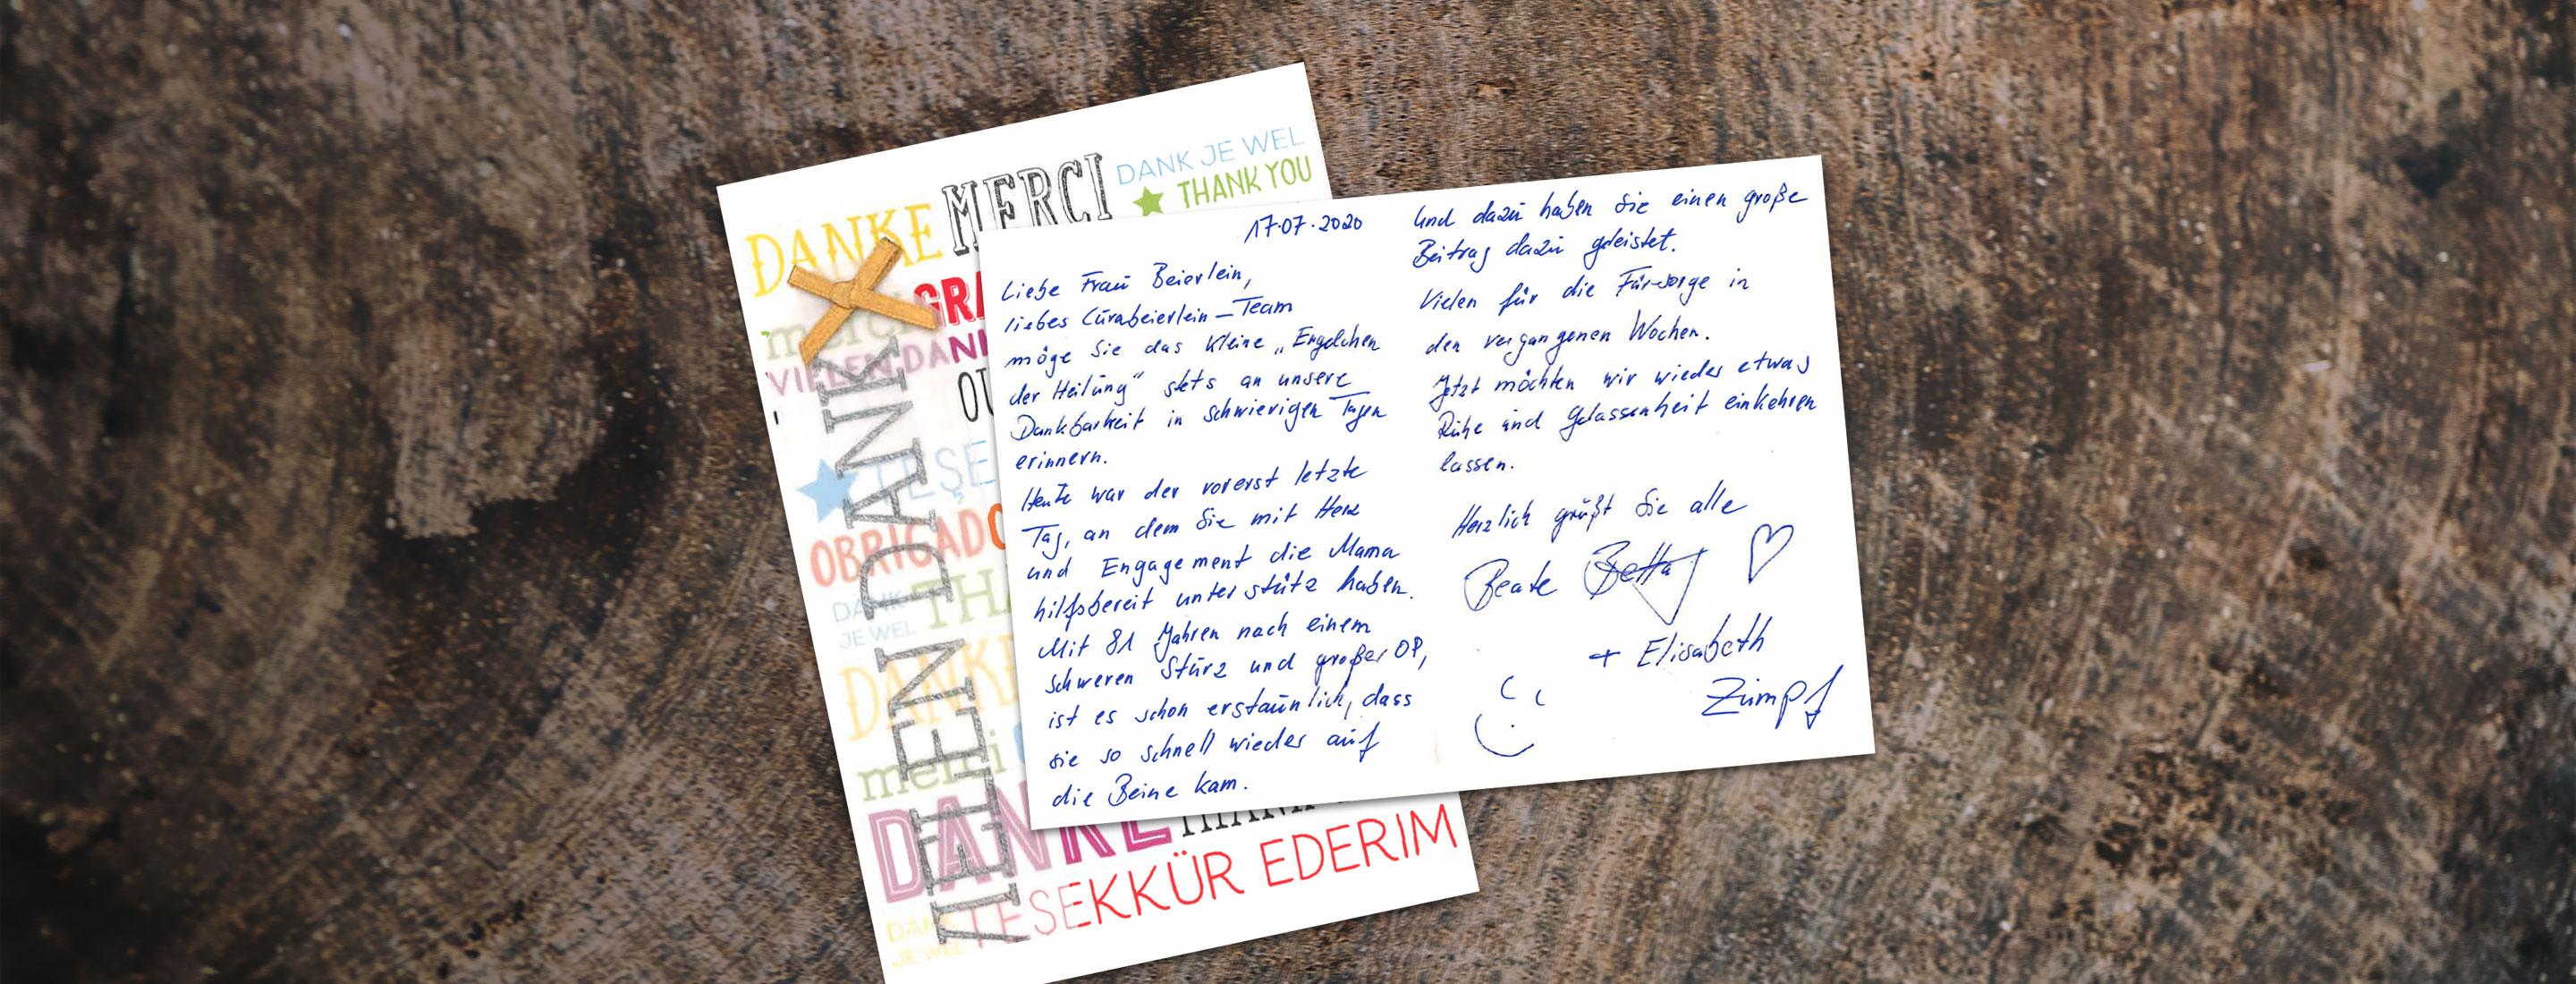 DANKE MERCI DANK JE WEL
THANK YOU
GRA
merci
VIELEN DANK
OU
VIELEN DANK
TEŞE
OBRIGADO
DANK
JE WEL
THA
DANKE
merci
DANKE
TESEKKÜR EDERIM
DANK
JE WEL
17.07.2020
Liebe Frau Beierlein,
liebes Curabeierlein-Team
möge Sie das kleine „Engelchen
der Heilung" stets an unsere
Dankbarkeit in schwierigen Tagen
erinnern.
Heute war der vorerst letzte
Tag, an dem Sie mit Herz
und Engagement die Mama
hilfsbereit unterstütz haben.
Mit 81 Jahren nach einem
schweren Sturz und großer OP,
ist es schon erstaunlich, dass
sie so schnell wieder auf
die Beine kam.
Und dazu haben Sie einen große
Beitrag dazu geleistet.
Vielen für die Fürsorge in
den vergangenen Wochen.
Jetzt möchten wir wieder etwas
Ruhe und Gelassenheit einkehren
lassen.
Herzlich grüßt Sie alle
Beate Betta
+ Elisabeth
Zumpf